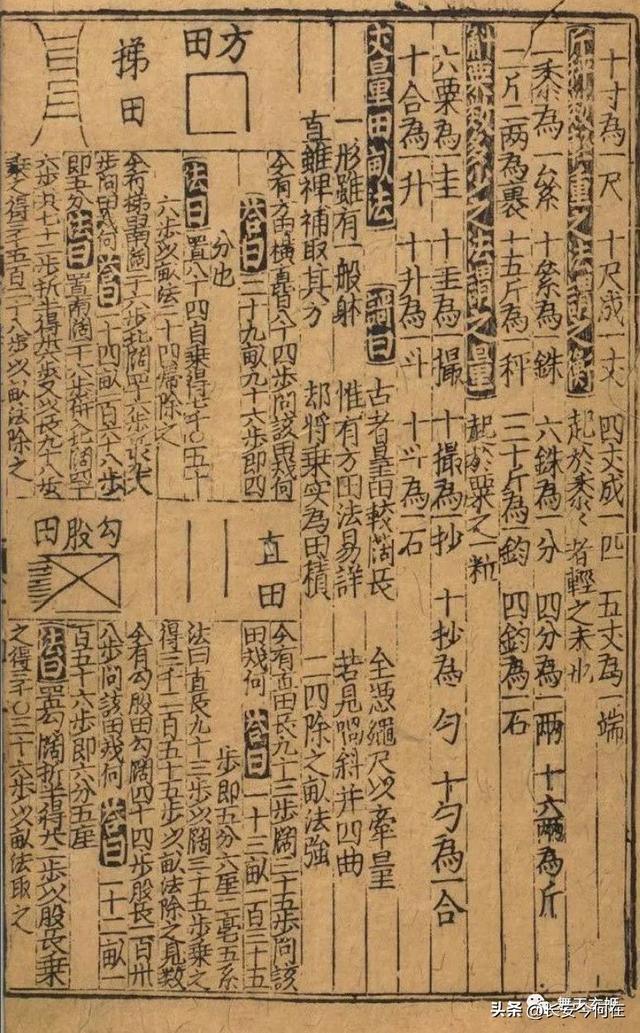 十寸為一尺 十尺成一丈 四丈成一匹 五丈為一端
斤秤數輕重之法謂之衡 起於黍〻者輕之未形
一黍為一絫 十絫為一銖 六銖為一分 四分為一兩 十六兩為斤
二斤二兩為裹 十五斤為一秤 三十斤為一鈞 四鈞為一石
斛粟數多少之法謂之量 起於粟之一粒
六粟為一圭 十圭為一撮 十撮為一抄 十抄為一勺 十勺為一合
十合為一升 十升為一斗 十斗為一石
丈量田畝法 謌曰 古者量田較濶長 全憑繩尺以牽量
一形雖有一般躰 惟有方田法易詳 若見喎斜并凹曲
直雖裨補取其方 却將乘實為田積 二四除之畝法強
方田
今有方田橫直各八十四步問該田幾何
答曰 二十九畝九十六步即四
分也
法曰 置八十四自乘得七千〇五十
六步以畝法二十四歸除之
梯田
今有梯田南闊二十六步北闊四十六步長九十八
步問田幾何 答曰 一十四畝一百六十八步
即五分 法曰 置南闊二十六步併入北闊四十
六步共七十二步折半得卅六步又以長九十八步
乘之得三千五百二十八步以畝法除之
直田
今有直田長九十三步闊三十五步問該
田幾何 答曰 一十三畝一百三十五
步即五分六厘二毫五系
法曰直長九十三步以闊三十五步乘之
得三千二百五十五步以畝法除之見數
勾股田
今有勾股田勾闊四十四步股長一百卅
八步問該田幾何 答曰 一十二畝一
百五十六步即六分五厘
法曰 置勾闊折半得廿二步以股長乘
之得三千〇三十六步以畝法取之
头条 @长安今何在